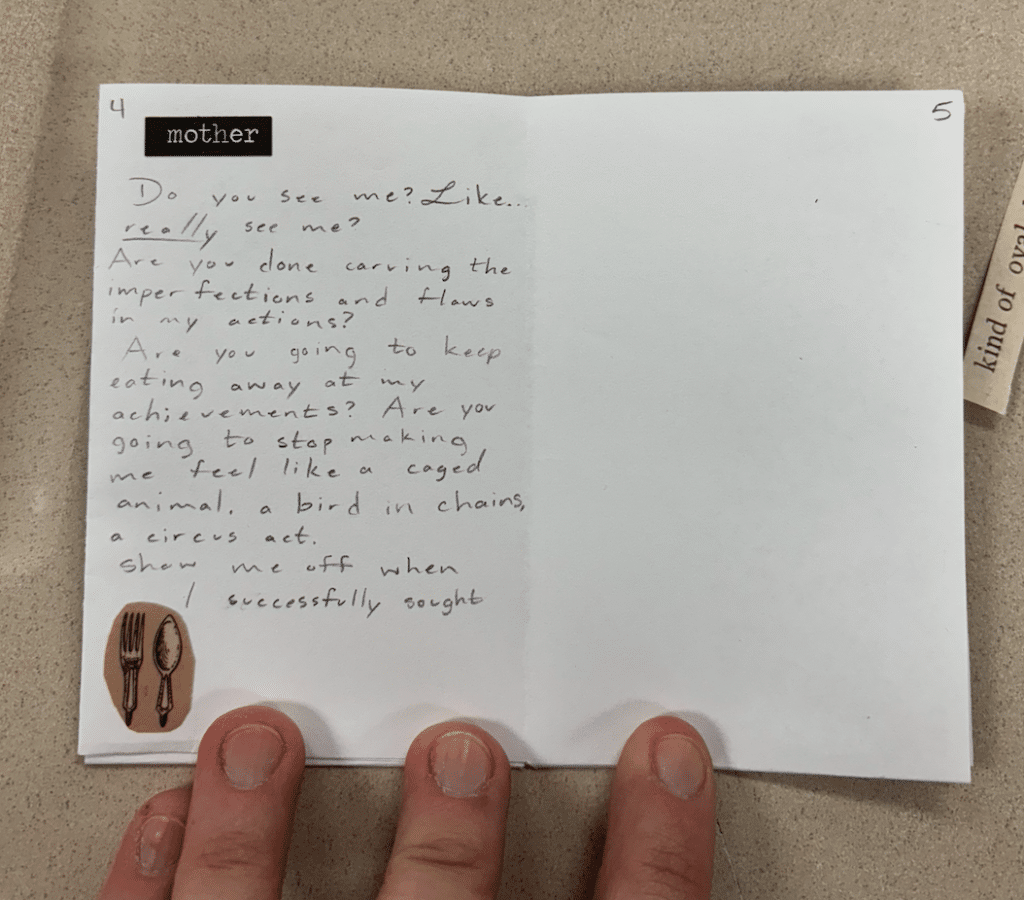 4
mother
Do you see me? Like...
really see me?
Are you done carving the
imperfections and flaws
in my actions?
Are you going to keep
eating away at my
achievements? Are you
going to stop making
me feel like a caged
animal. a bird in chains,
a circus act.
show me off when
I successfully sought
5
kind of oval